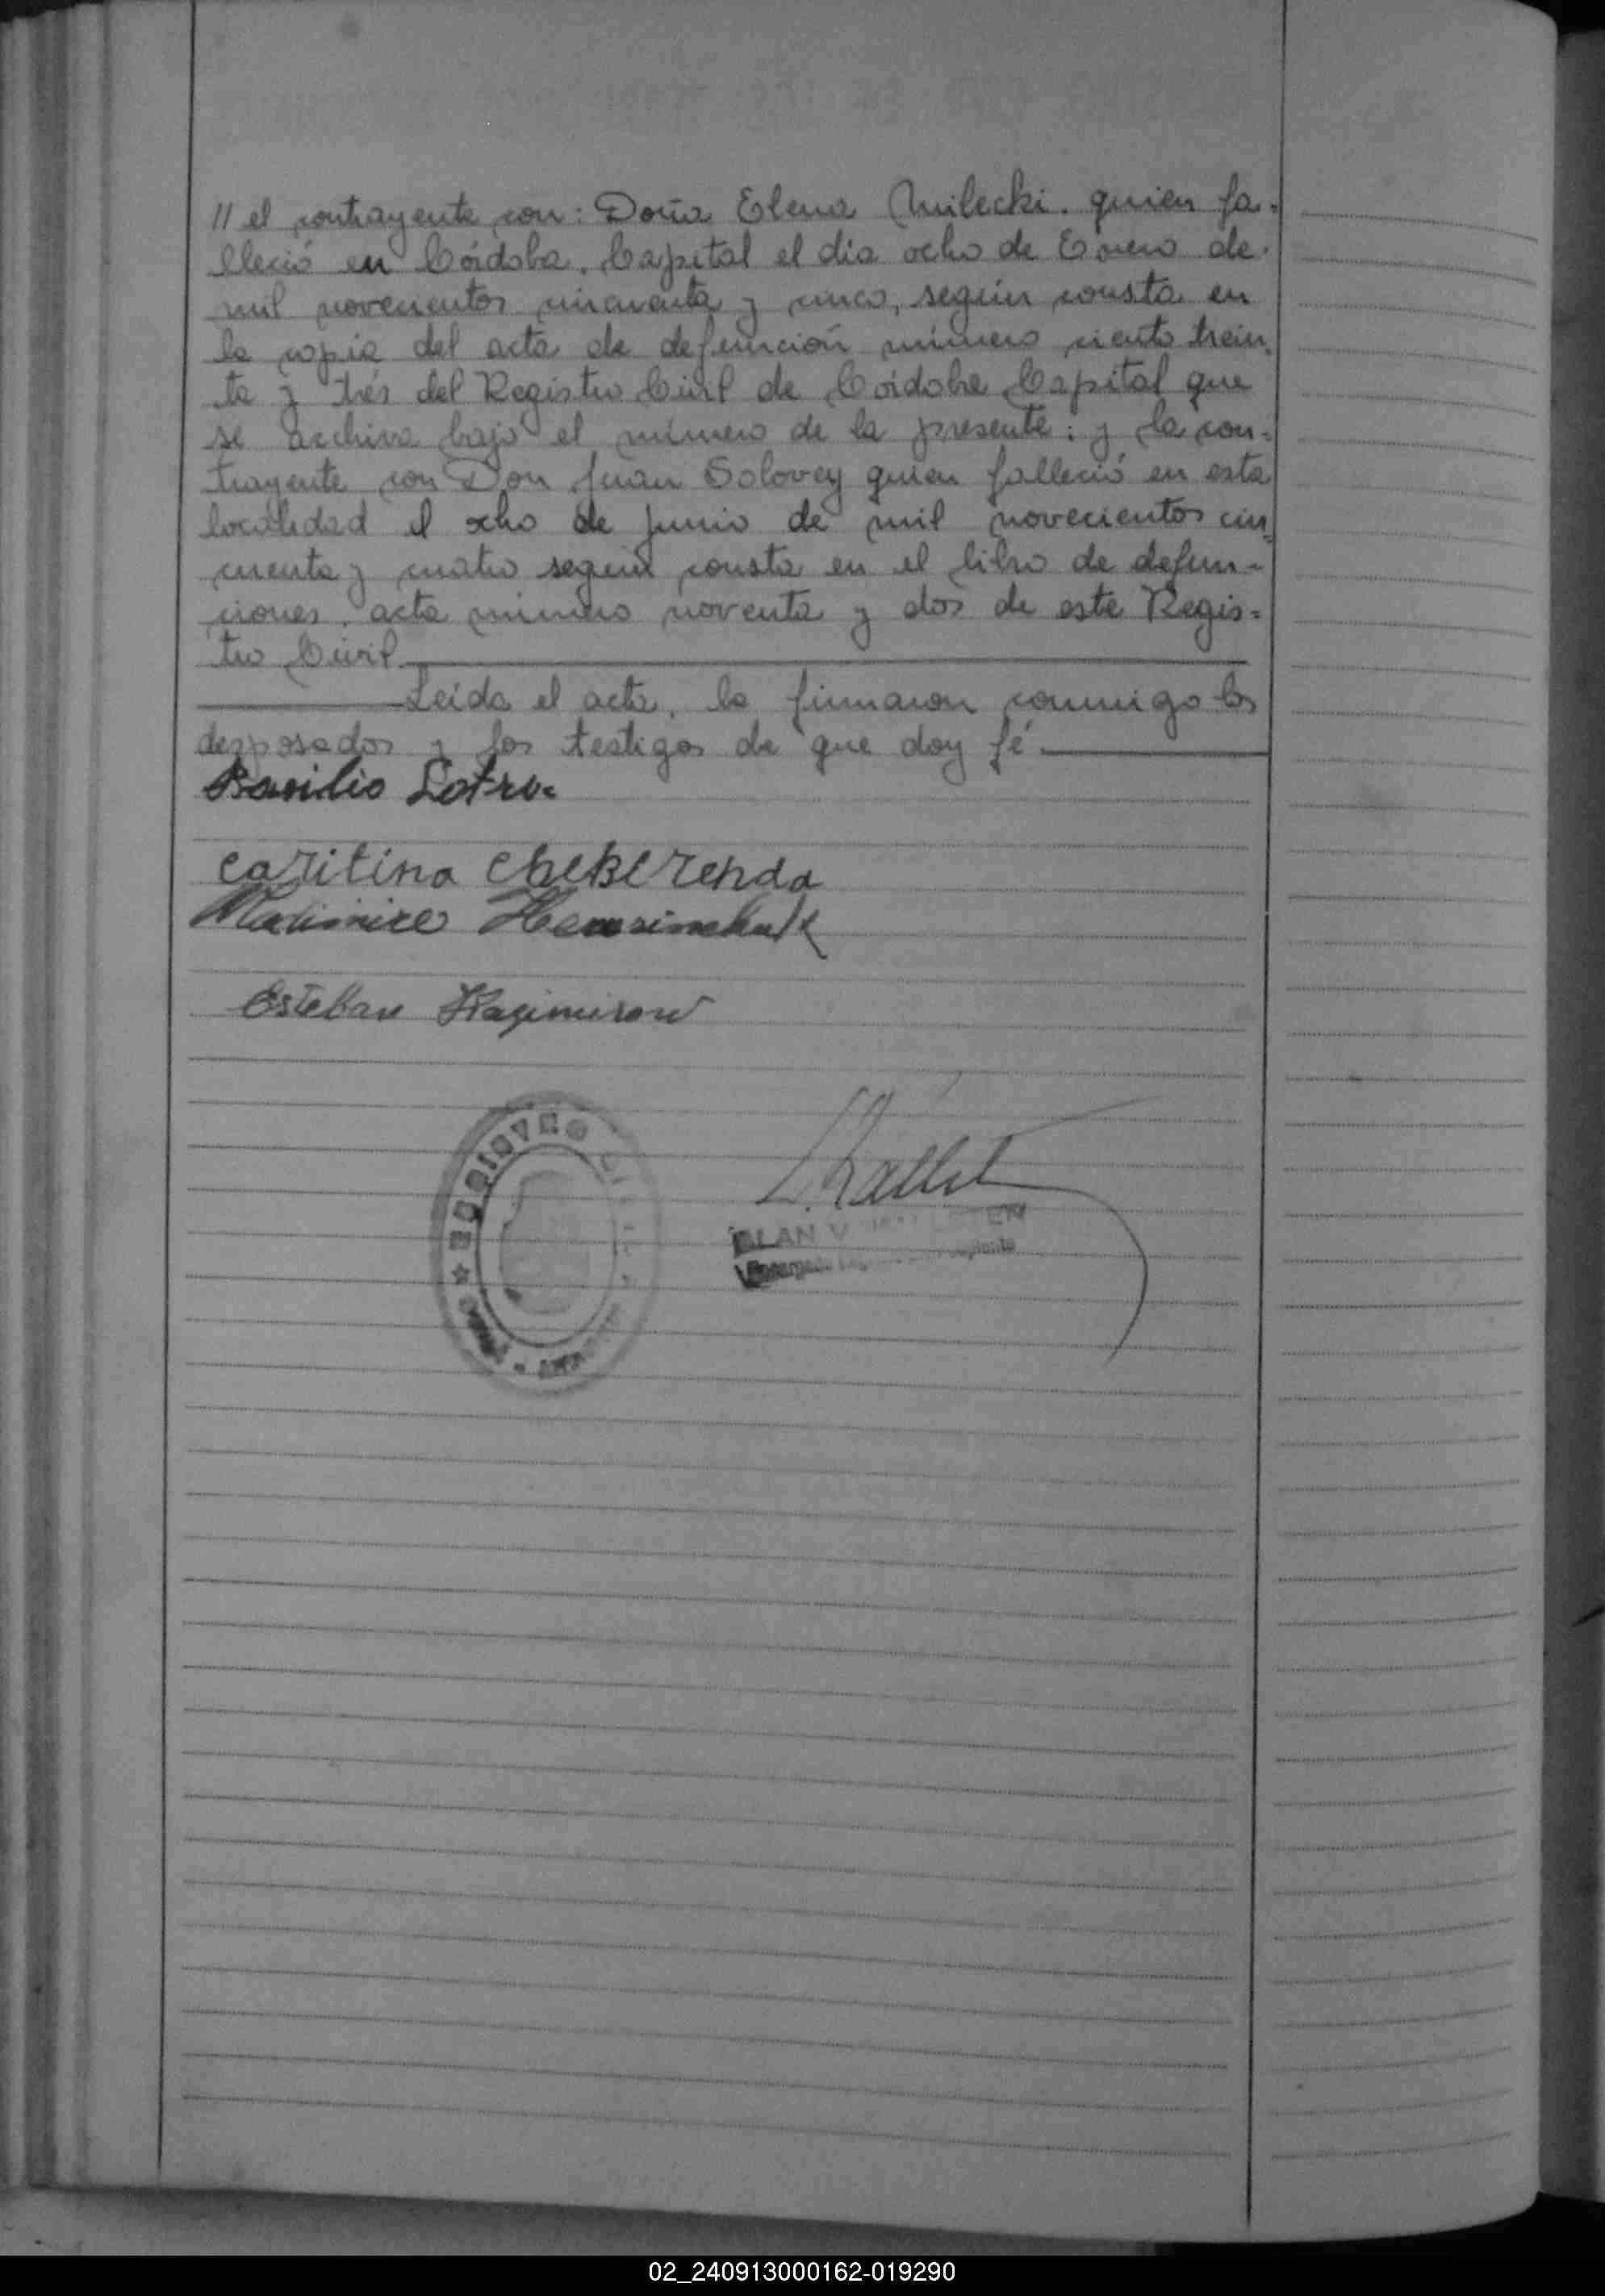 // el contrayente con: Doña Elena Milecki. quien fa-
lleció en Córdoba, Capital el día ocho de Enero de
mil novecientos cincuenta y cinco, según consta en
la copia del acta de defunción número ciento trein-
ta y trés del Registro Civil de Córdoba Capital que
se archiva bajo el número de la presente: y la con-
trayente con Don Juan Solovey quien falleció en esta
localidad el ocho de Junio de mil novecientos cin-
cuenta y cuatro según consta en el libro de defun-
ciones, acta número noventa y dos de este Regis-
tro Civil.
Leída el acta, la firmaron conmigo los
desposados y los testigos de que doy fé.
Basilio
caritina cheberenda
Esteban Kazimirow
02_240913000162-019290